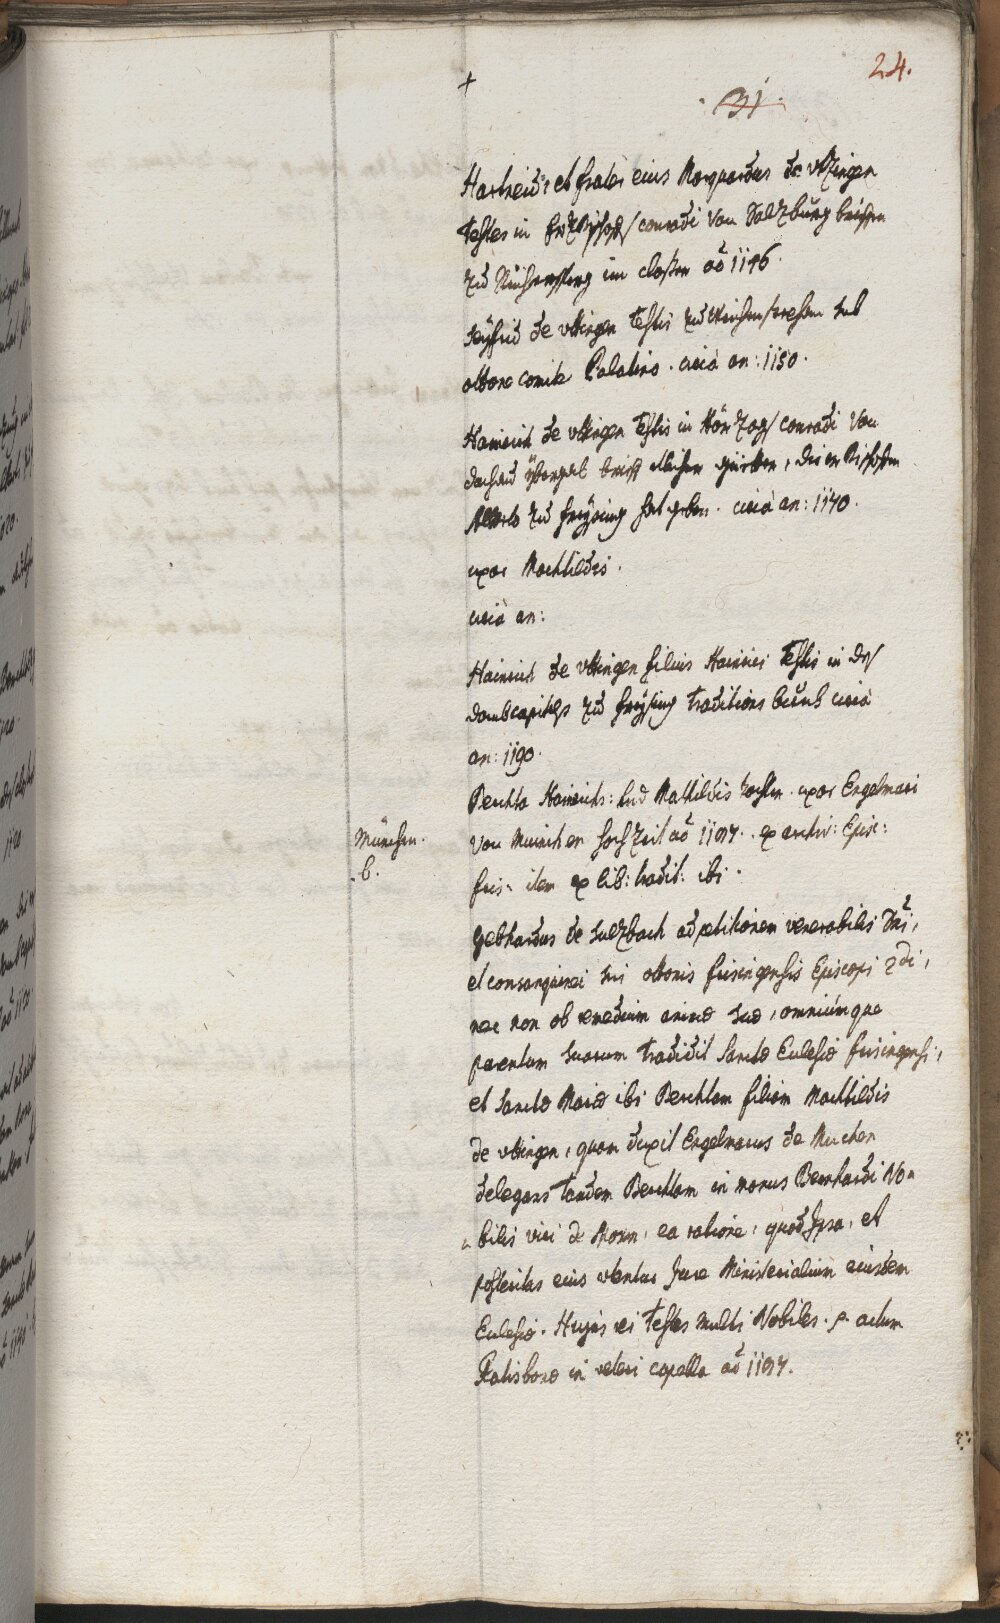 24.
+
31.
Hartneid: et frater eius Marquardus de vttingen
testes in Ertzbischofs Conradi von Saltzburg brifen
zu im closter aõ 1146.
Seyfrid de vttingen testis zu sub
ottone comite Palatino. circa an: 1150.
Hainrich de vttingen testis in Hörtzogs Conradi von
dachau ybergab brieff etlicher güetter, die er Bischofen
Alberto zu freysing hat geben. circa an: 1170.
uxor Machtildis.
circa an:
Hainrich de vttingen filius Hainrici testis in des
dombcapitels zu freysing traditions buech circa
an: 1190.
Berchta Hainrichs: und Mathildis tochter. uxor Engelmari
München.
von Munichen hochzeit aõ 1197. ex archiv: Episc:
.b.
fris: item ex lib: tradit: ibi.
Gebhardus de Sulzbach ad petitionem venerabilis Dñi,
et consanguinei sui ottonis frisingensis Episcopi 2di,
nec non ob remedium animæ suæ, omniumque
parentum suorum tradidit Sanctæ Ecclesiæ frisingensi,
et Sanctæ Mariæ ibi Berchtam filiam Machtildis
de vttingen, quam duxit Engelmarus de Muchen
delegans tandem Berchtam in manus Bernhardi No=
=bilis viri de Morn, ea ratione, quod Ipsa, et
posteritas eius utentur Jure Ministerialium eiusdem
Ecclesiæ. Hujus rei testes multi Nobiles. actum
Ratisbonæ in veteri capella aõ 1197.